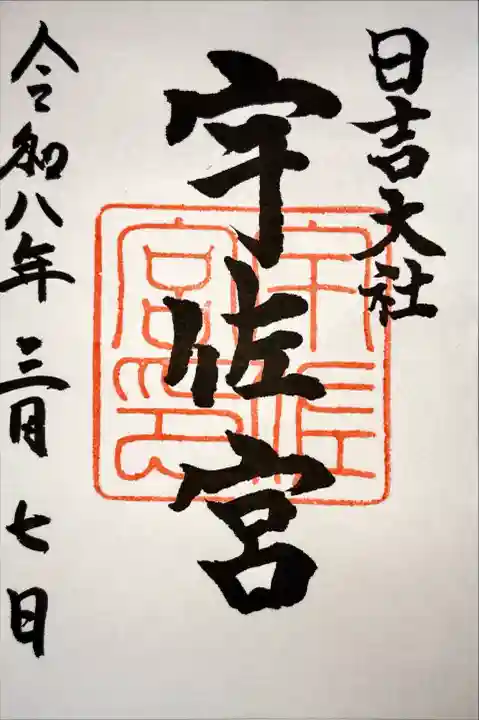 日吉大社
宇佐宮
宇佐宮印
令和八年三月七日